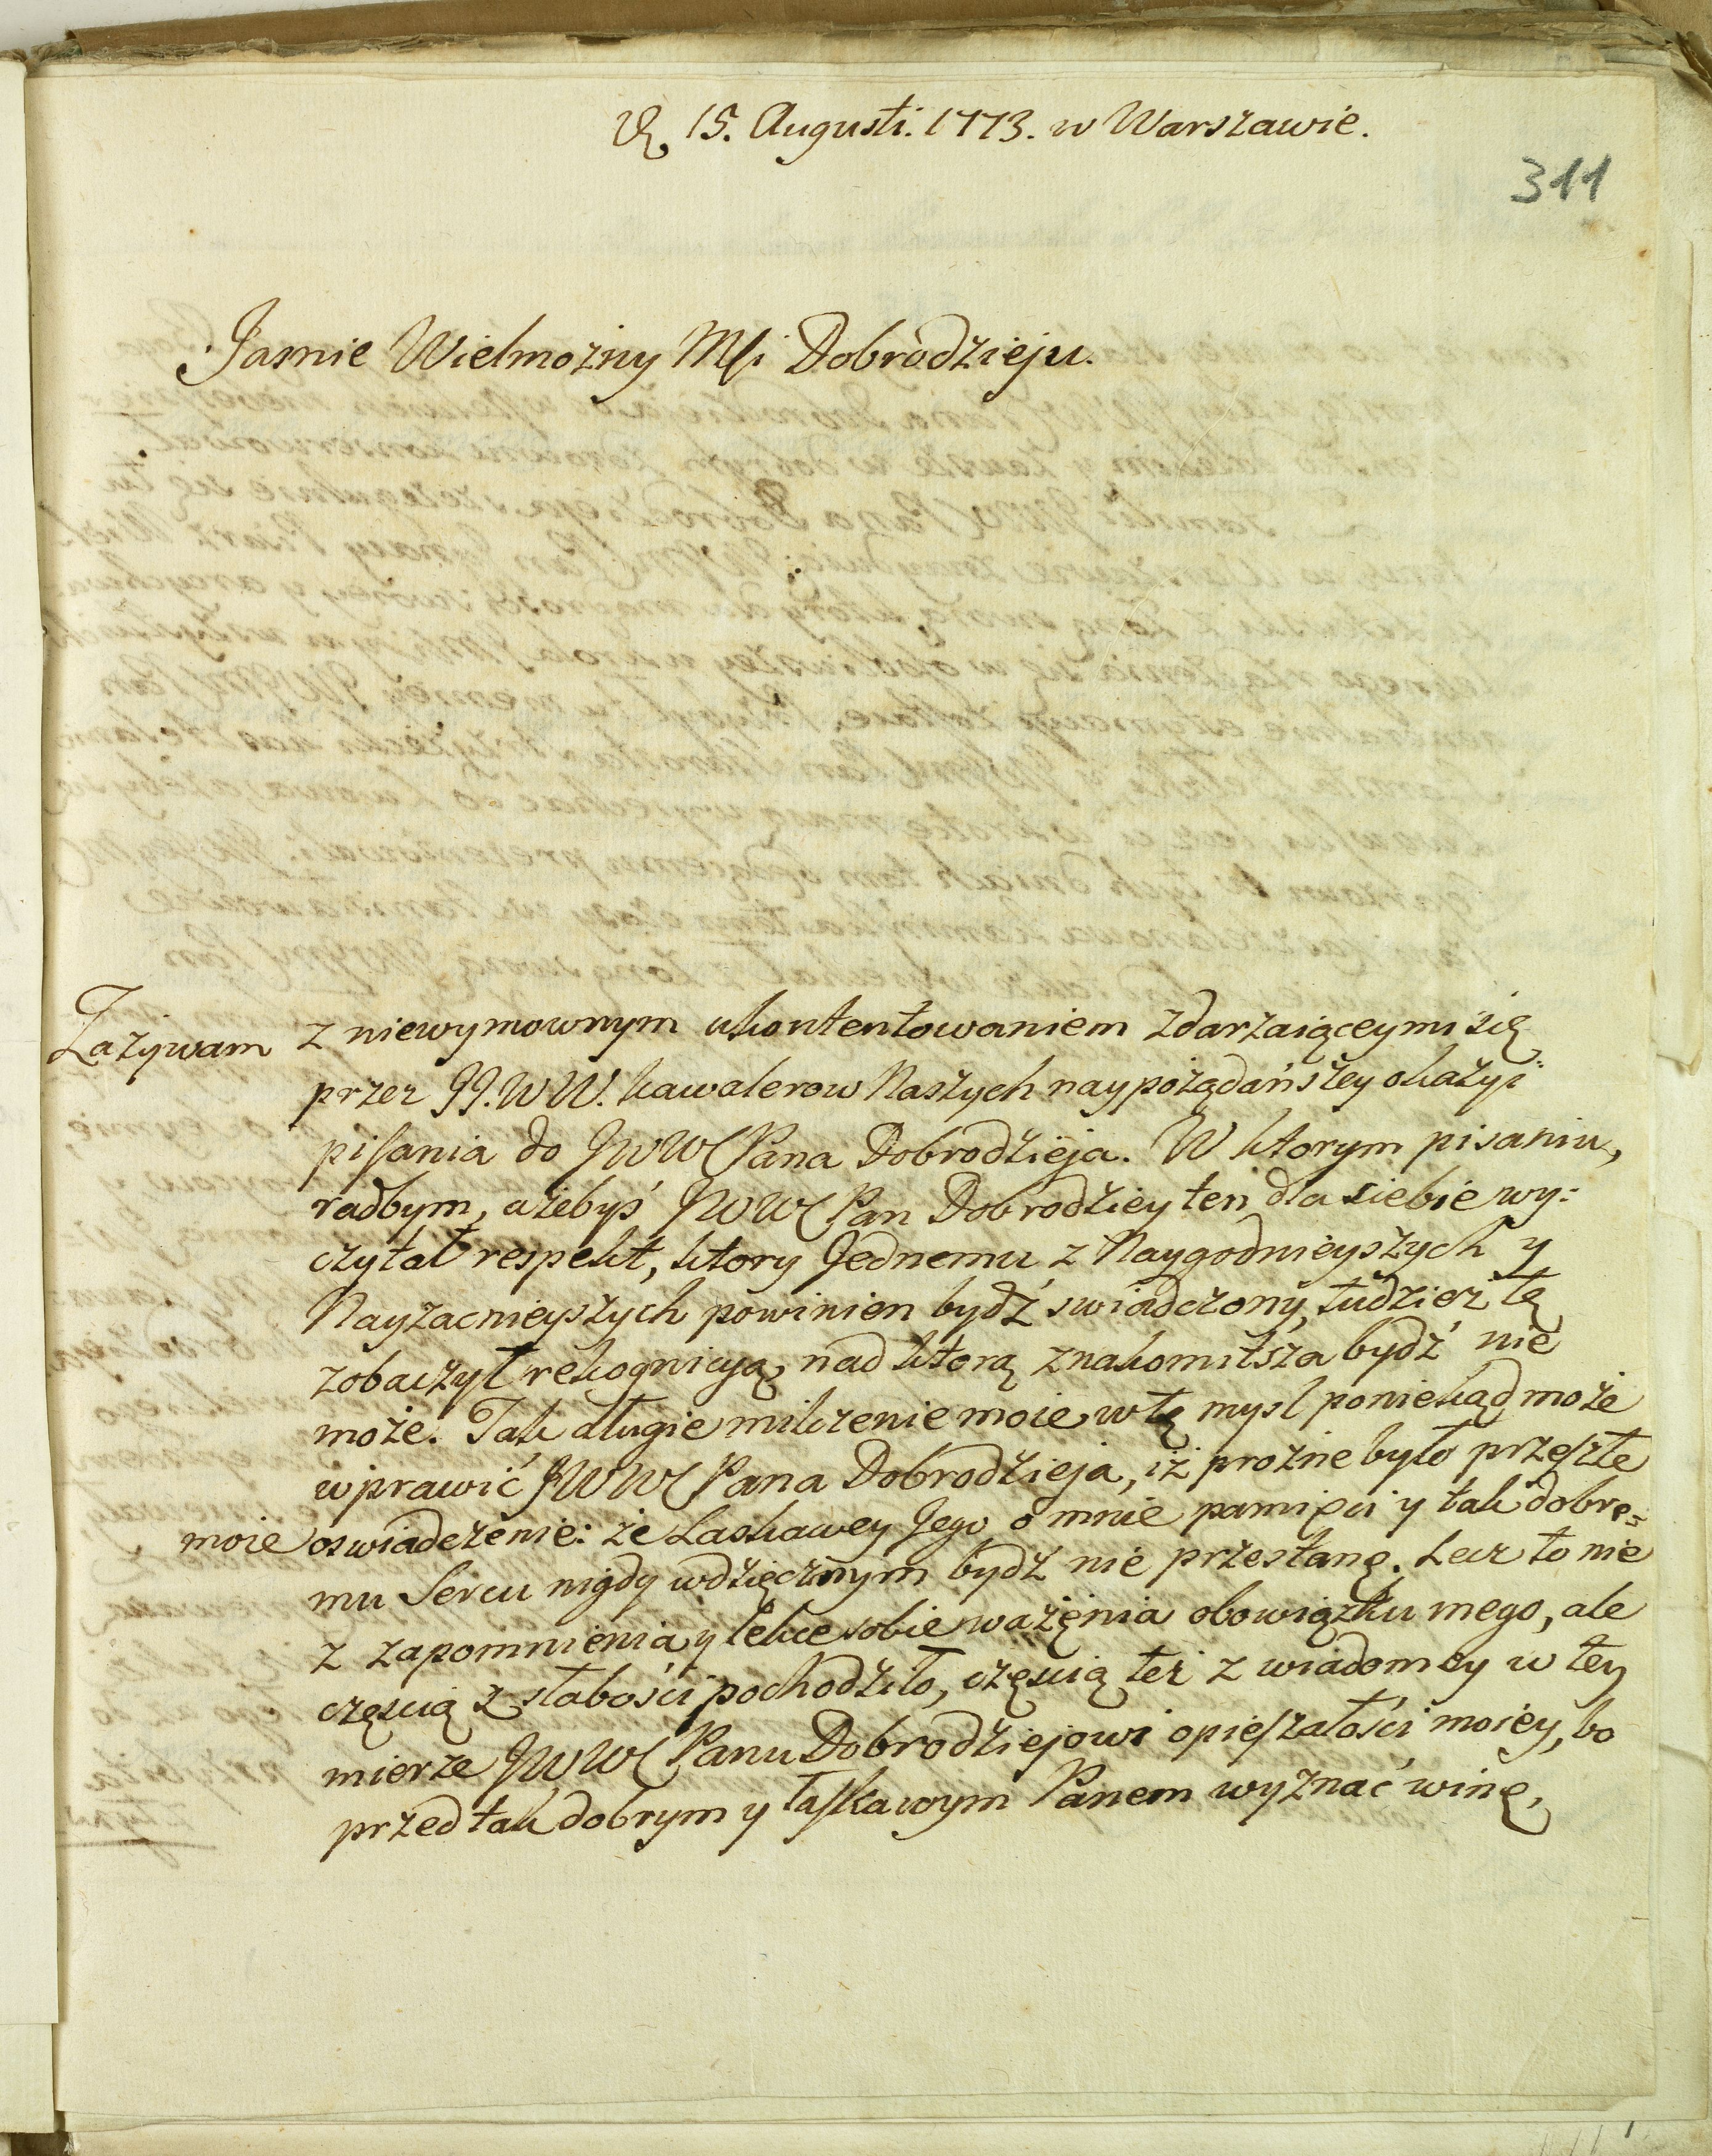 D. 15. Augusti. 1773. w Warszawie.
311
Jasnie Wielmożny Mſi Dobrodzieju.
Zażywam z niewymownym ukontentowaniem zdarzaiąceymi się
przez JJ.WW. kawalerow Naszych naypożądańszey okazyi
piſania do JWW Pana Dobrodzieja. W ktorym pisaniu,
radbym, ażebyś JWW Pan Dobrodziey ten dla siebie wy:
czytał respekt, ktory Jednemu z Naygodnieyszych y
Nayzacnieyszych powinien bydź swiadczony, tudzież tę
zobaczył rekognicyą, nad ktorą znakomitsza bydź nie
może. Tak długie milczenie moie w tę mysl poniekąd może
wprawić JWW Pana Dobrodzieja, iż prożne było przeſzłe
moie oswiadczenie: że Laskawey Jego o mnie pamięci y tak dobre=
mu Sercu nigdy wdzięcznym bydź nie przestanę. Lecz to nie
z zapomnienia y lekce sobie ważęnia obowiązku mego, ale
częscią z słabości pochodziło, częscią też z wiadomey w tey
mierze JWW Panu Dobrodziejowi opieſzałości moiey, bo
przed tak dobrym y łaſkawym Panem wyznać winę,